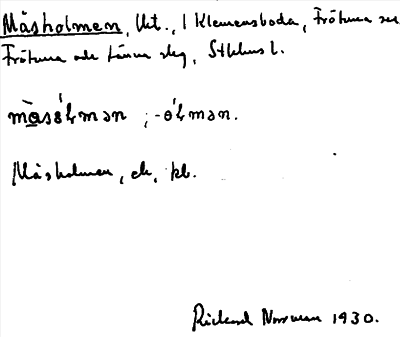 Måsholmen, Ut., 1 Klemensboda, Frötuna sn
Frötuna och Länna slg, Sthlms l.
mås󠄀ólmən ; -ólmən.
Måsholmen, ek, pl.
Rickard Norman 1930.